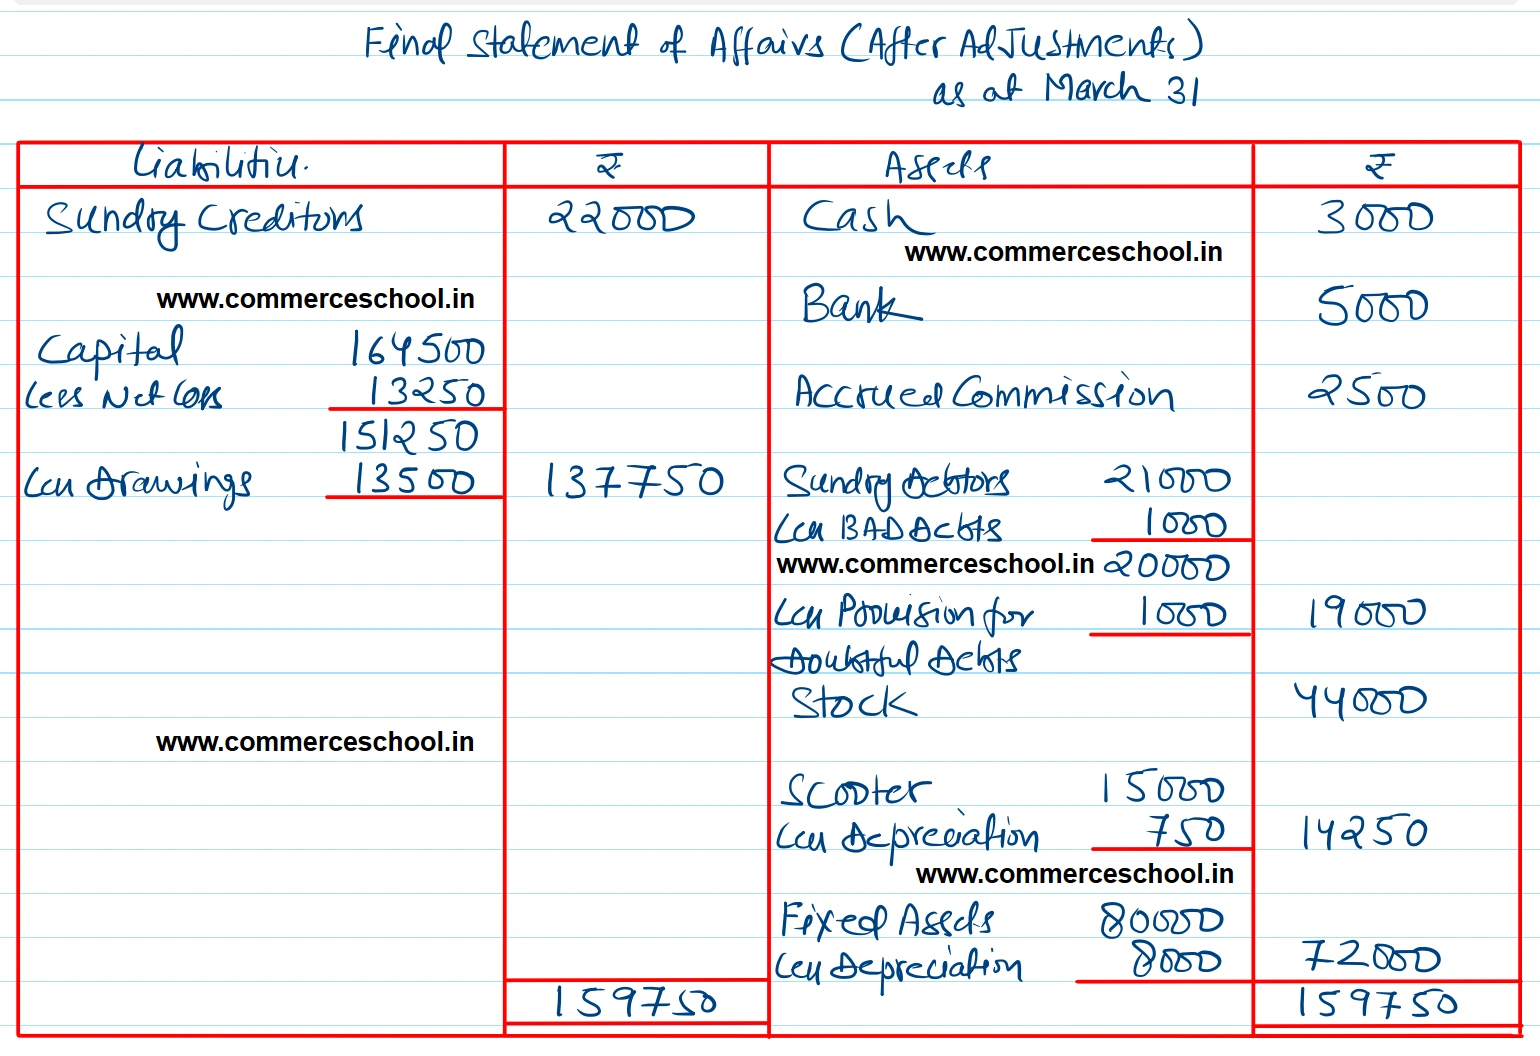 Final Statement of Affairs (After Adjustments)
as at March 31
Liabilities ₹ Assets ₹
Sundry Creditors 22000 Cash 3000
www.commerceschool.in
www.commerceschool.in
Bank 5000
Capital 164500
Less Net Loss 13250 Accrued Commission 2500
151250
Less Drawings 13500 137750 Sundry Debtors 21000
Less BAD Debts 1000
www.commerceschool.in 20000
Less Provision for 1000 19000
Doubtful Debts
Stock 44000
www.commerceschool.in
Scooter 15000
Less Depreciation 750 14250
www.commerceschool.in
Fixed Assets 80000
Less Depreciation 8000 72000
159750 159750